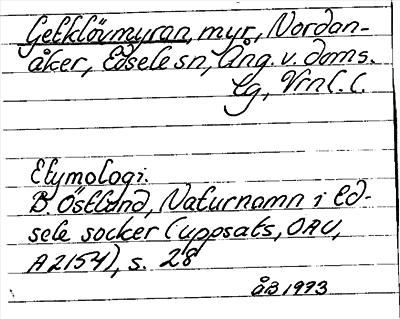 Getklövmyran, myr, Nordan-
åker, Edsele sn, Ång. v. doms.
lg, Vrnl. l.
Etymologi.
B. Östlund, Naturnamn i Ed-
sele socken (uppsats, OAU,
A2154), s. 28
åB 1973